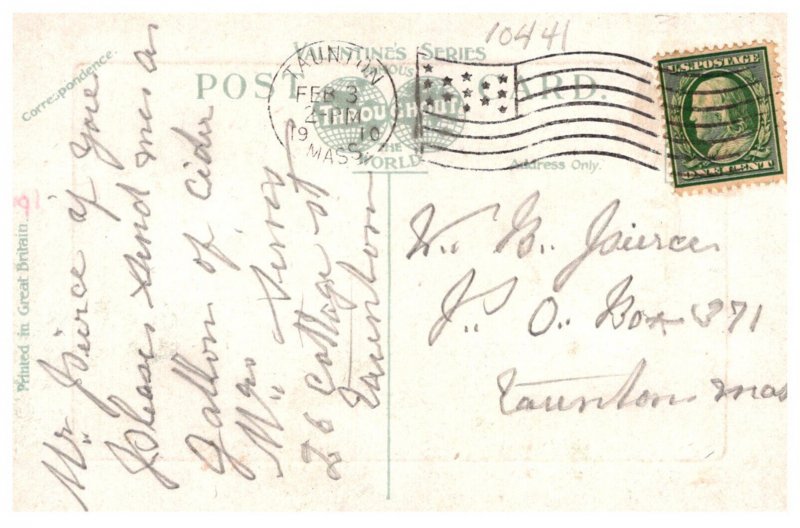 10441
VALENTINE'S SERIES
FAMOUS
THROUGHOUT
THE
WORLD
POST CARD.
TAUNTON
FEB 3
2 PM
1910
MASS.
U.S. POSTAGE
ONE CENT
Correspondence.
Address Only.
Printed in Great Britain
Mr. Pierce if you
Please send me a
Gallon of Cider
Mrs
26 Cottage St
Taunton
W. B. Pierce
P. O. Box 371
Taunton Mas